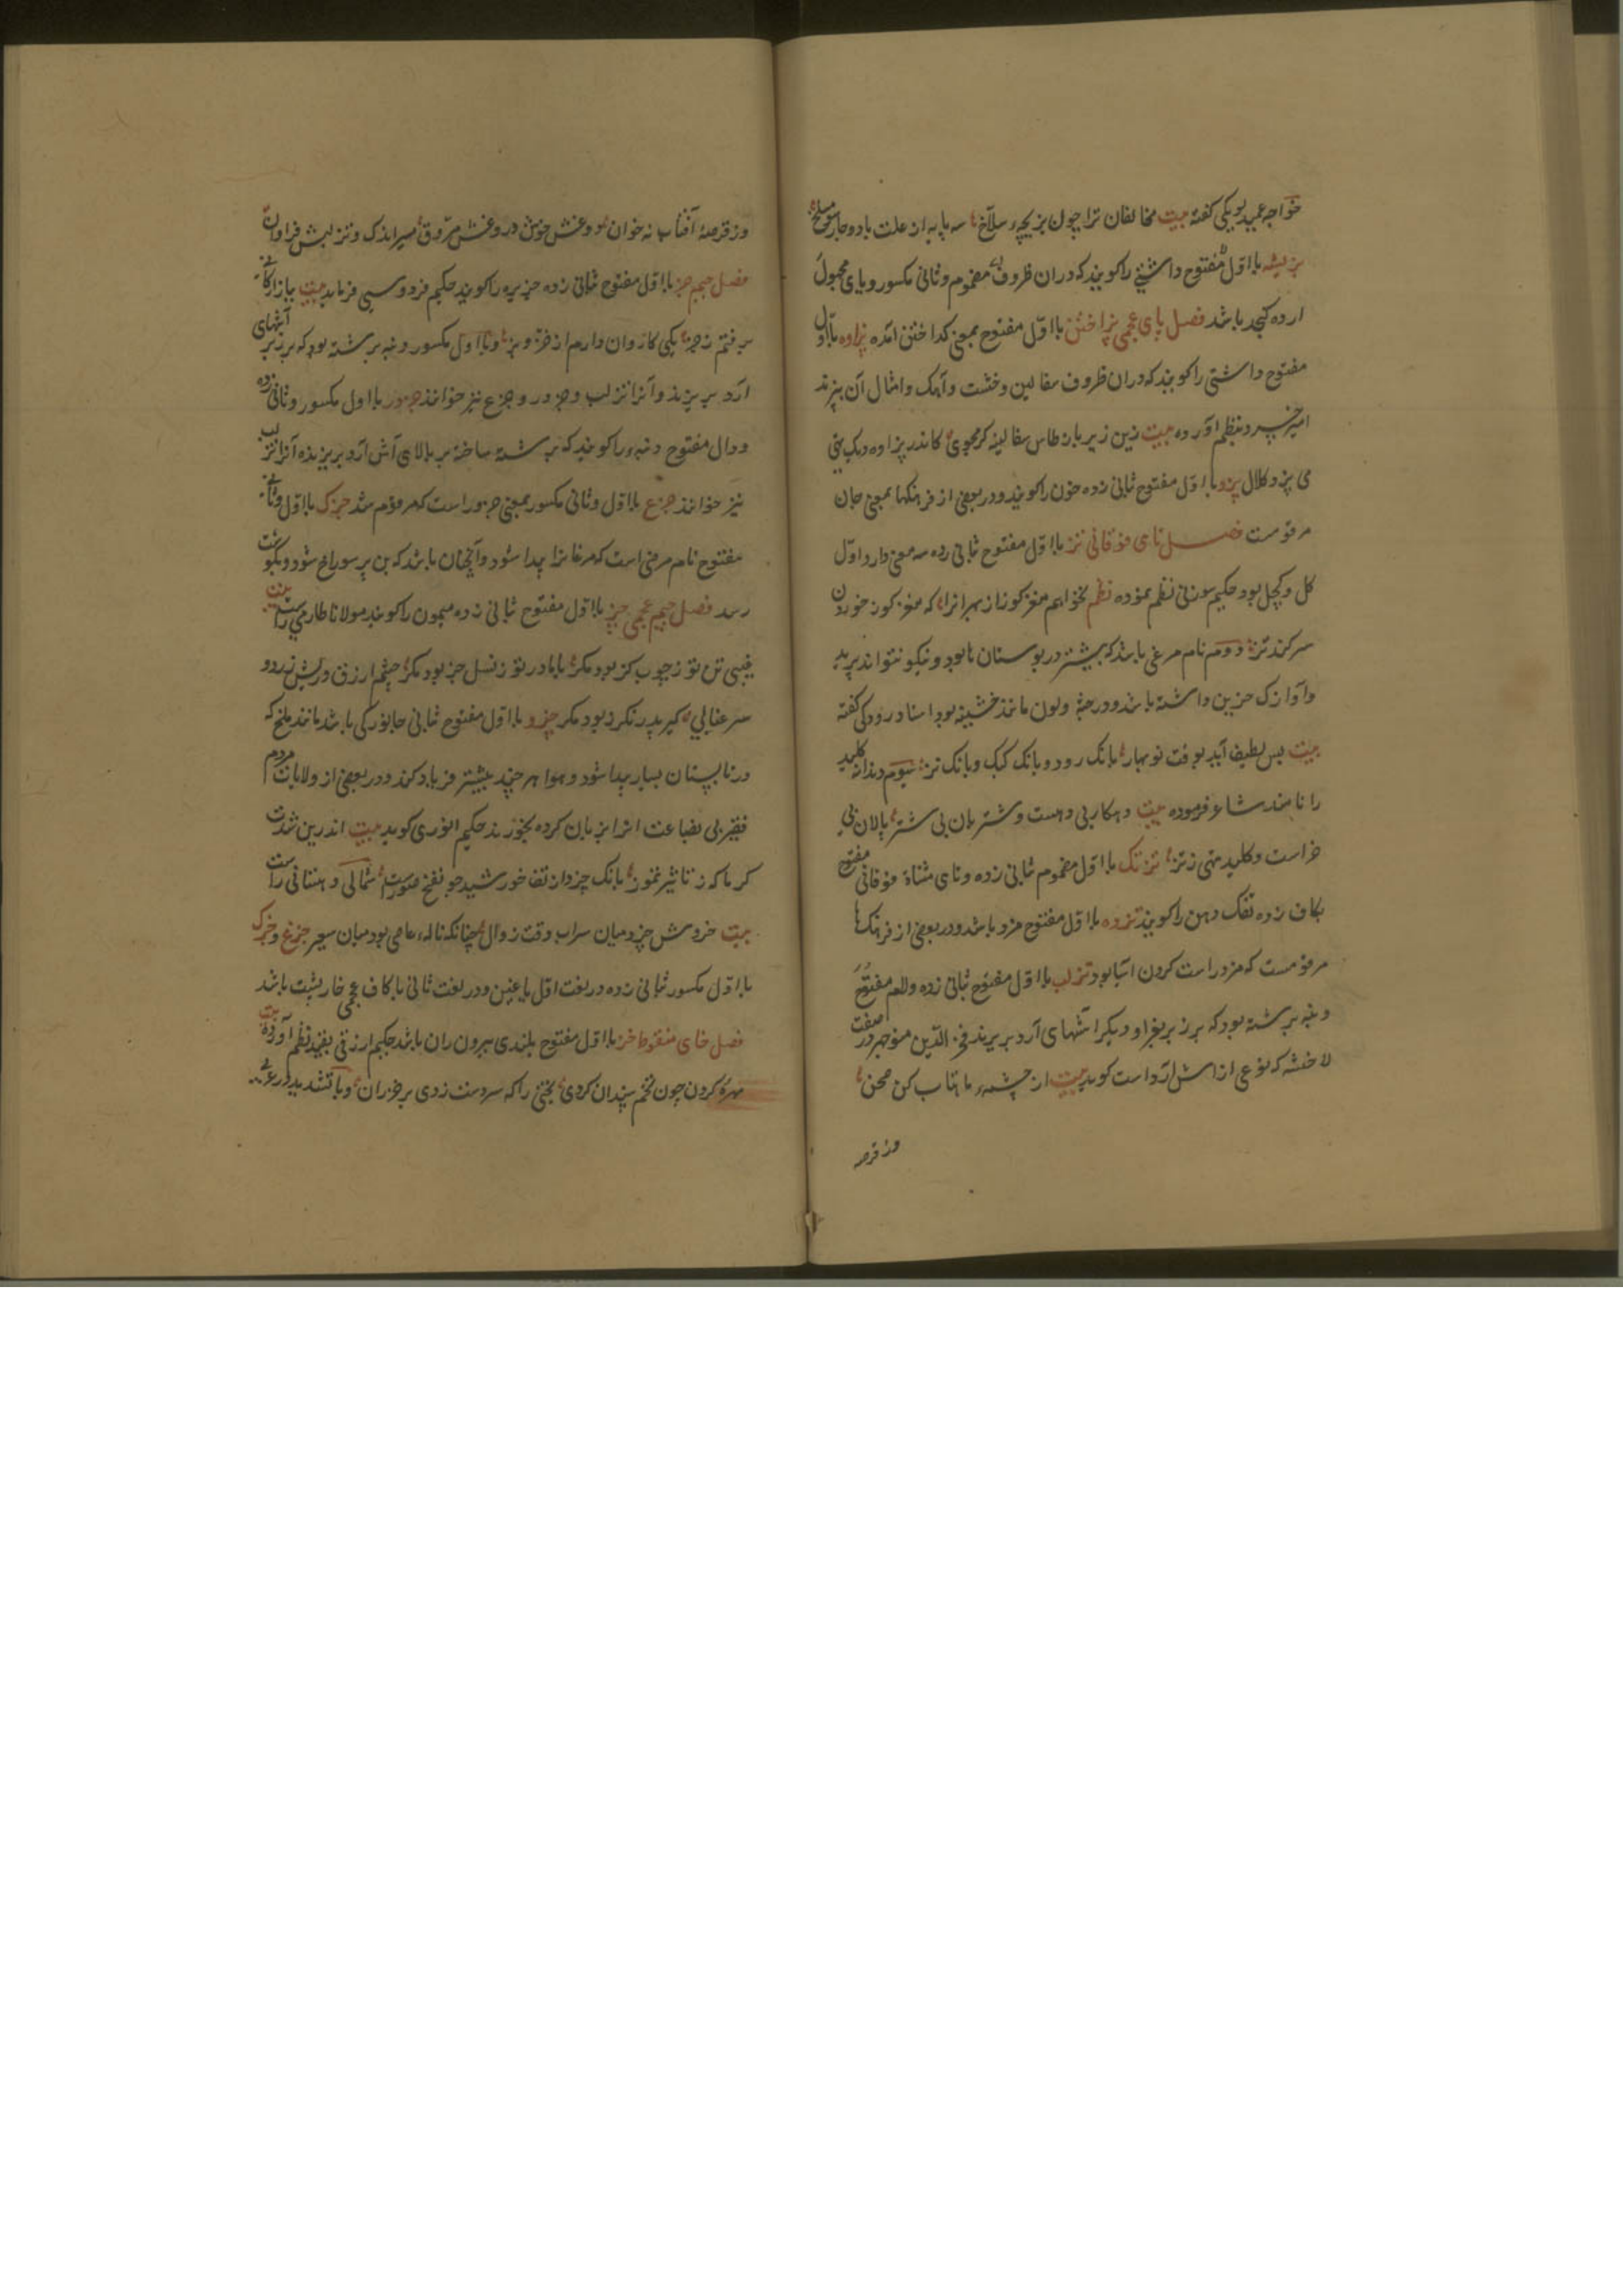 خواجه عمید لویکی گفته بیت مخالفان ترا چون بزیچهٔ سلاخ سه پایه از علت با دو چار مسلخ
بزیشه با اول مفتوح داشتی را گویند که دران ظروف مضموم و ثانی مکسور و یای مجهول
ارده کنجد باشد فصل بای عجمی پزاختن با اول مفتوح بمعنی گداختن آمده پزاوه با اول
مفتوح داشتی را گویند که دران ظروف سفالین و خشت و آهک و امثال آن بپزند
امیر خسرو بنظم آورده بیت زین زیر باز طاس سفالینه کر مجوی کاندر پزاوه دیک
می پزد کلال پزو با اول مفتوح ثانی زده خون را گویند و در بعضی از فرهنگها بمعنی جان
مرقومست فصل تای فوقانی تز با اول مفتوح ثانی زده سه معنی دارد اول
کل و کچل بود حکیم سوزنی نظم نموده نظم نخواهم مغز کوز از بهر انرا که مغز کوز خوردن
سر کند تز دوم نام مرغی باشد که بیشتر در بوستان ها بود و نیکو نتواند پرید
و آوازک حزین داشته باشد و در جثه و لون مانند خشینه بود استاد رودکی گفته
بیت بس لطیف آید بوقت نو بهار بانک رود و بانک کبک و بانک تز سیوم دندانه کلید
را نامند شاعر فرموده بیت دهکار بی دهست و شتربان بی شتر پالان بی
خراست و کلید منی ز تز تزتک با اول مضموم ثانی زده و تای مثناة فوقانی مفتوح
بکاف زده تفک دهن را گویند تزده با اول مفتوح مزد باشد و در بعضی از فرهنک ها
مرقومست که مزد راست کردن آسیا بود تزلب با اول مفتوح ثانی زده و لام مفتوح
دنبه برشته بود که بر زبر بغرا و دیکر آشهای آرد بریزند فخر الدین منوچهر در صفت
لاخشه که نوعی از آش آرد است کوید بیت از چشمهٔ ماهتاب کن صحن
وز قرصه
وز قرصهٔ آفتاب نه خوان دوغش خوش و روغنش مروق سیر اندک و تزلبش فراوان
فصل جیم جز با اول مفتوح ثانی زده جزیره را گویند حکیم فردوسی فرماید بیت ببازارگانی
برفتم ز جز یکی کاروان دارم از خز و بز و با اول مکسور دنبه برشته بود که بر زبر آشهای
آرد بریزند و آنرا تزلب و جزدر و جزغ نیز خوانند جزدر با اول مکسور و ثانی زده
و دال مفتوح دنبه را گویند که برشته ساخته بر بالای آش آرد بریزند و آنرا تزلب
نیز خوانند جزغ با اول و ثانی مکسور بمعنی جزدر است که مرقوم شد جزک با اول و ثانی
مفتوح نام مرضی است که مرغانرا پیدا شود و آنچنان باشد که بن پر سوراخ شود و بگوشت
رسد فصل جیم عجمی چز با اول مفتوح ثانی زده میمون را گویند مولانا طارمی راست بیت
غیبی تن تو ز چوب کز بود مکر با مادر تو ز نسل چز بود مکر چشم ازرق و ریش زرد و
سر عنابی کیر پدر نکرز بود مکر چزد با اول مفتوح ثانی جانورکی باشد مانند ملخ که
در تابستان بسیار پیدا شود و هوا هر چند بیشتر فریاد کند و در بعضی از ولایات مردم
فقیر بی بضاعت انرا بریان کرده بخورند حکیم انوری کوید بیت اندرین شدت
کرما که ز تاثیر تموز بانک چزد از تف خورشید چو نفخ صور است شمالی دهستانی راست
بیت خروش چزد میان سراب وقت زوال چنانکه ناله عاصی بود میان سعیر چزغ و چزک
با اول مکسور ثانی زده در لغت اول با غین و در لغت ثانی با کاف عجمی خارپشت باشد
فصل خای منقوطه خز با اول مفتوح بلندی بیرون ران باشد حکیم ازرقی بقید نظم آورده بیت
مهره کردن چون تخم سپندان کردی بختی را که سر دست زدی بر خز ران و با تشدید در عربی